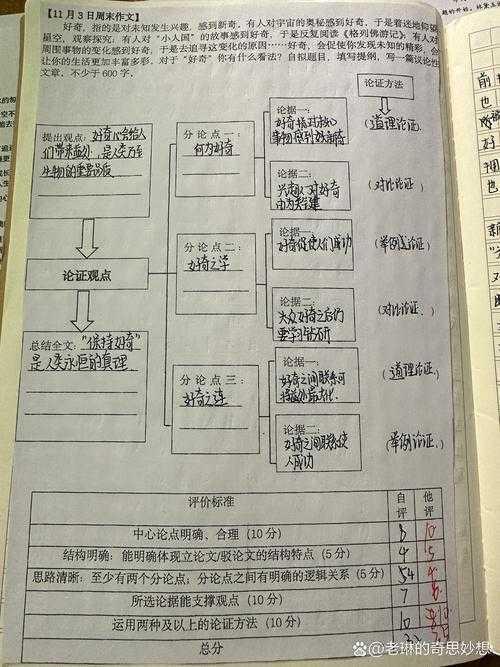 【11月3日周末作文】
好奇，指的是对未知发生兴趣，感到新奇，有人对宇宙的奥秘感到好奇，于是着迷地仰望
星空，观察探究；有人对“小人国”的故事感到好奇，于是反复阅读《格列佛游记》；有人对
周围事物的变化感到好奇，于是去追寻这变化的原因……好奇，会促使你发现未知的精彩，会
让你的生活更加丰富多彩，对于“好奇”你有什么看法？自拟题目，填写提纲，写一篇议论性
文章，不少于600字。
论证方法
提出观点：好奇心会给人
们带来益处，是人类乃至
生物的重要
分论点一：
何为好奇
论据一：
好奇指对核心
事物感到新奇
（道理论证）
论据二：
（对比论证）
论证观点
分论点二：
好奇之学
论据一：
好奇促使人们成功
（举例论证）
论据二：
大众好奇之后们
要学习钻研
（对比论证）
总结全文：“保持好奇”
是人类永恒的真理
分论点三：
好奇之连
论据一：
好奇之间联系可
（道理论证）
论据二：
好奇之间联系使
人成功
（举例论证）
评价标准 自评 他评
中心论点明确、合理（10分） 8 10
结构明确：能明确体现立论文/驳论文的结构特点（5分） 4 5
思路清晰：至少有两个分论点；分论点之间有明确的逻辑关系（5分） 4
所选论据能支撑观点（10分） 7
运用两种及以上的论证方法（10分） 10
总分
@老琳的奇思妙想